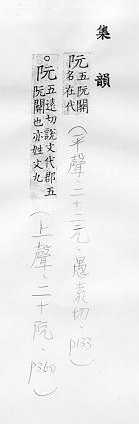 集韻
阮
五阮關
名在代
(平聲·二十二元·愚袁切·p133)
○阮
五遠切說文代郡五
阮關也亦姓文九
(上聲·二十阮·p360)